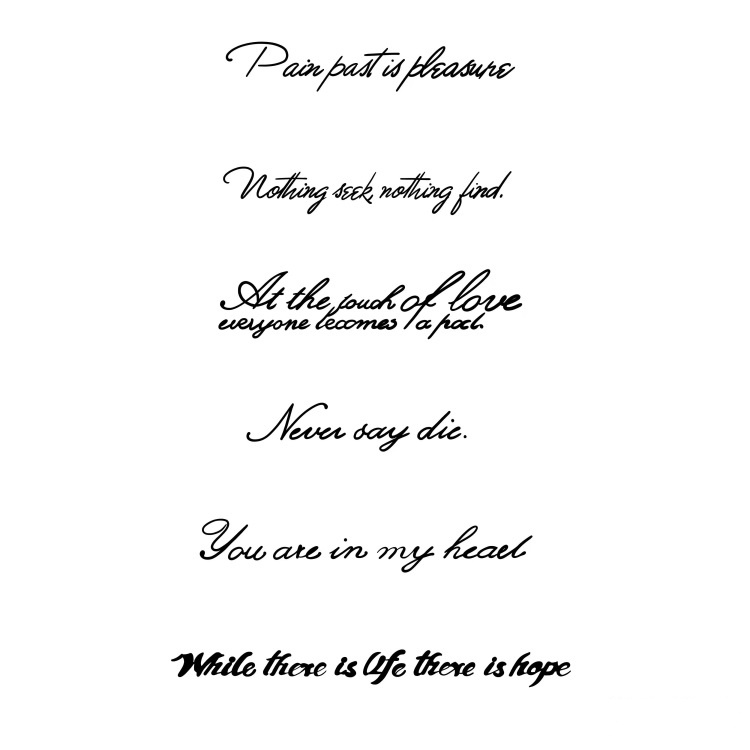 Pain past is pleasure
Nothing seek, nothing find.
At the touch of love
everyone becomes a poet.
Never say die.
You are in my heart
While there is life there is hope